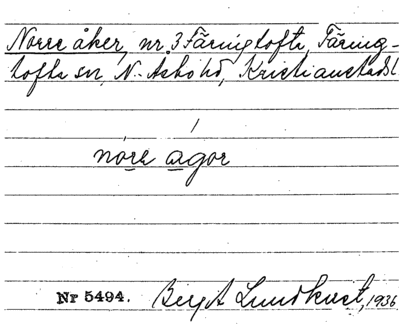 Norre åker, nr 3 Färingtofta, Färing-
tofta sn, N. Åsbo hd, Kristianstads l.
/
nore agor
Nr 5494. Bengt Lundkvist, 1936